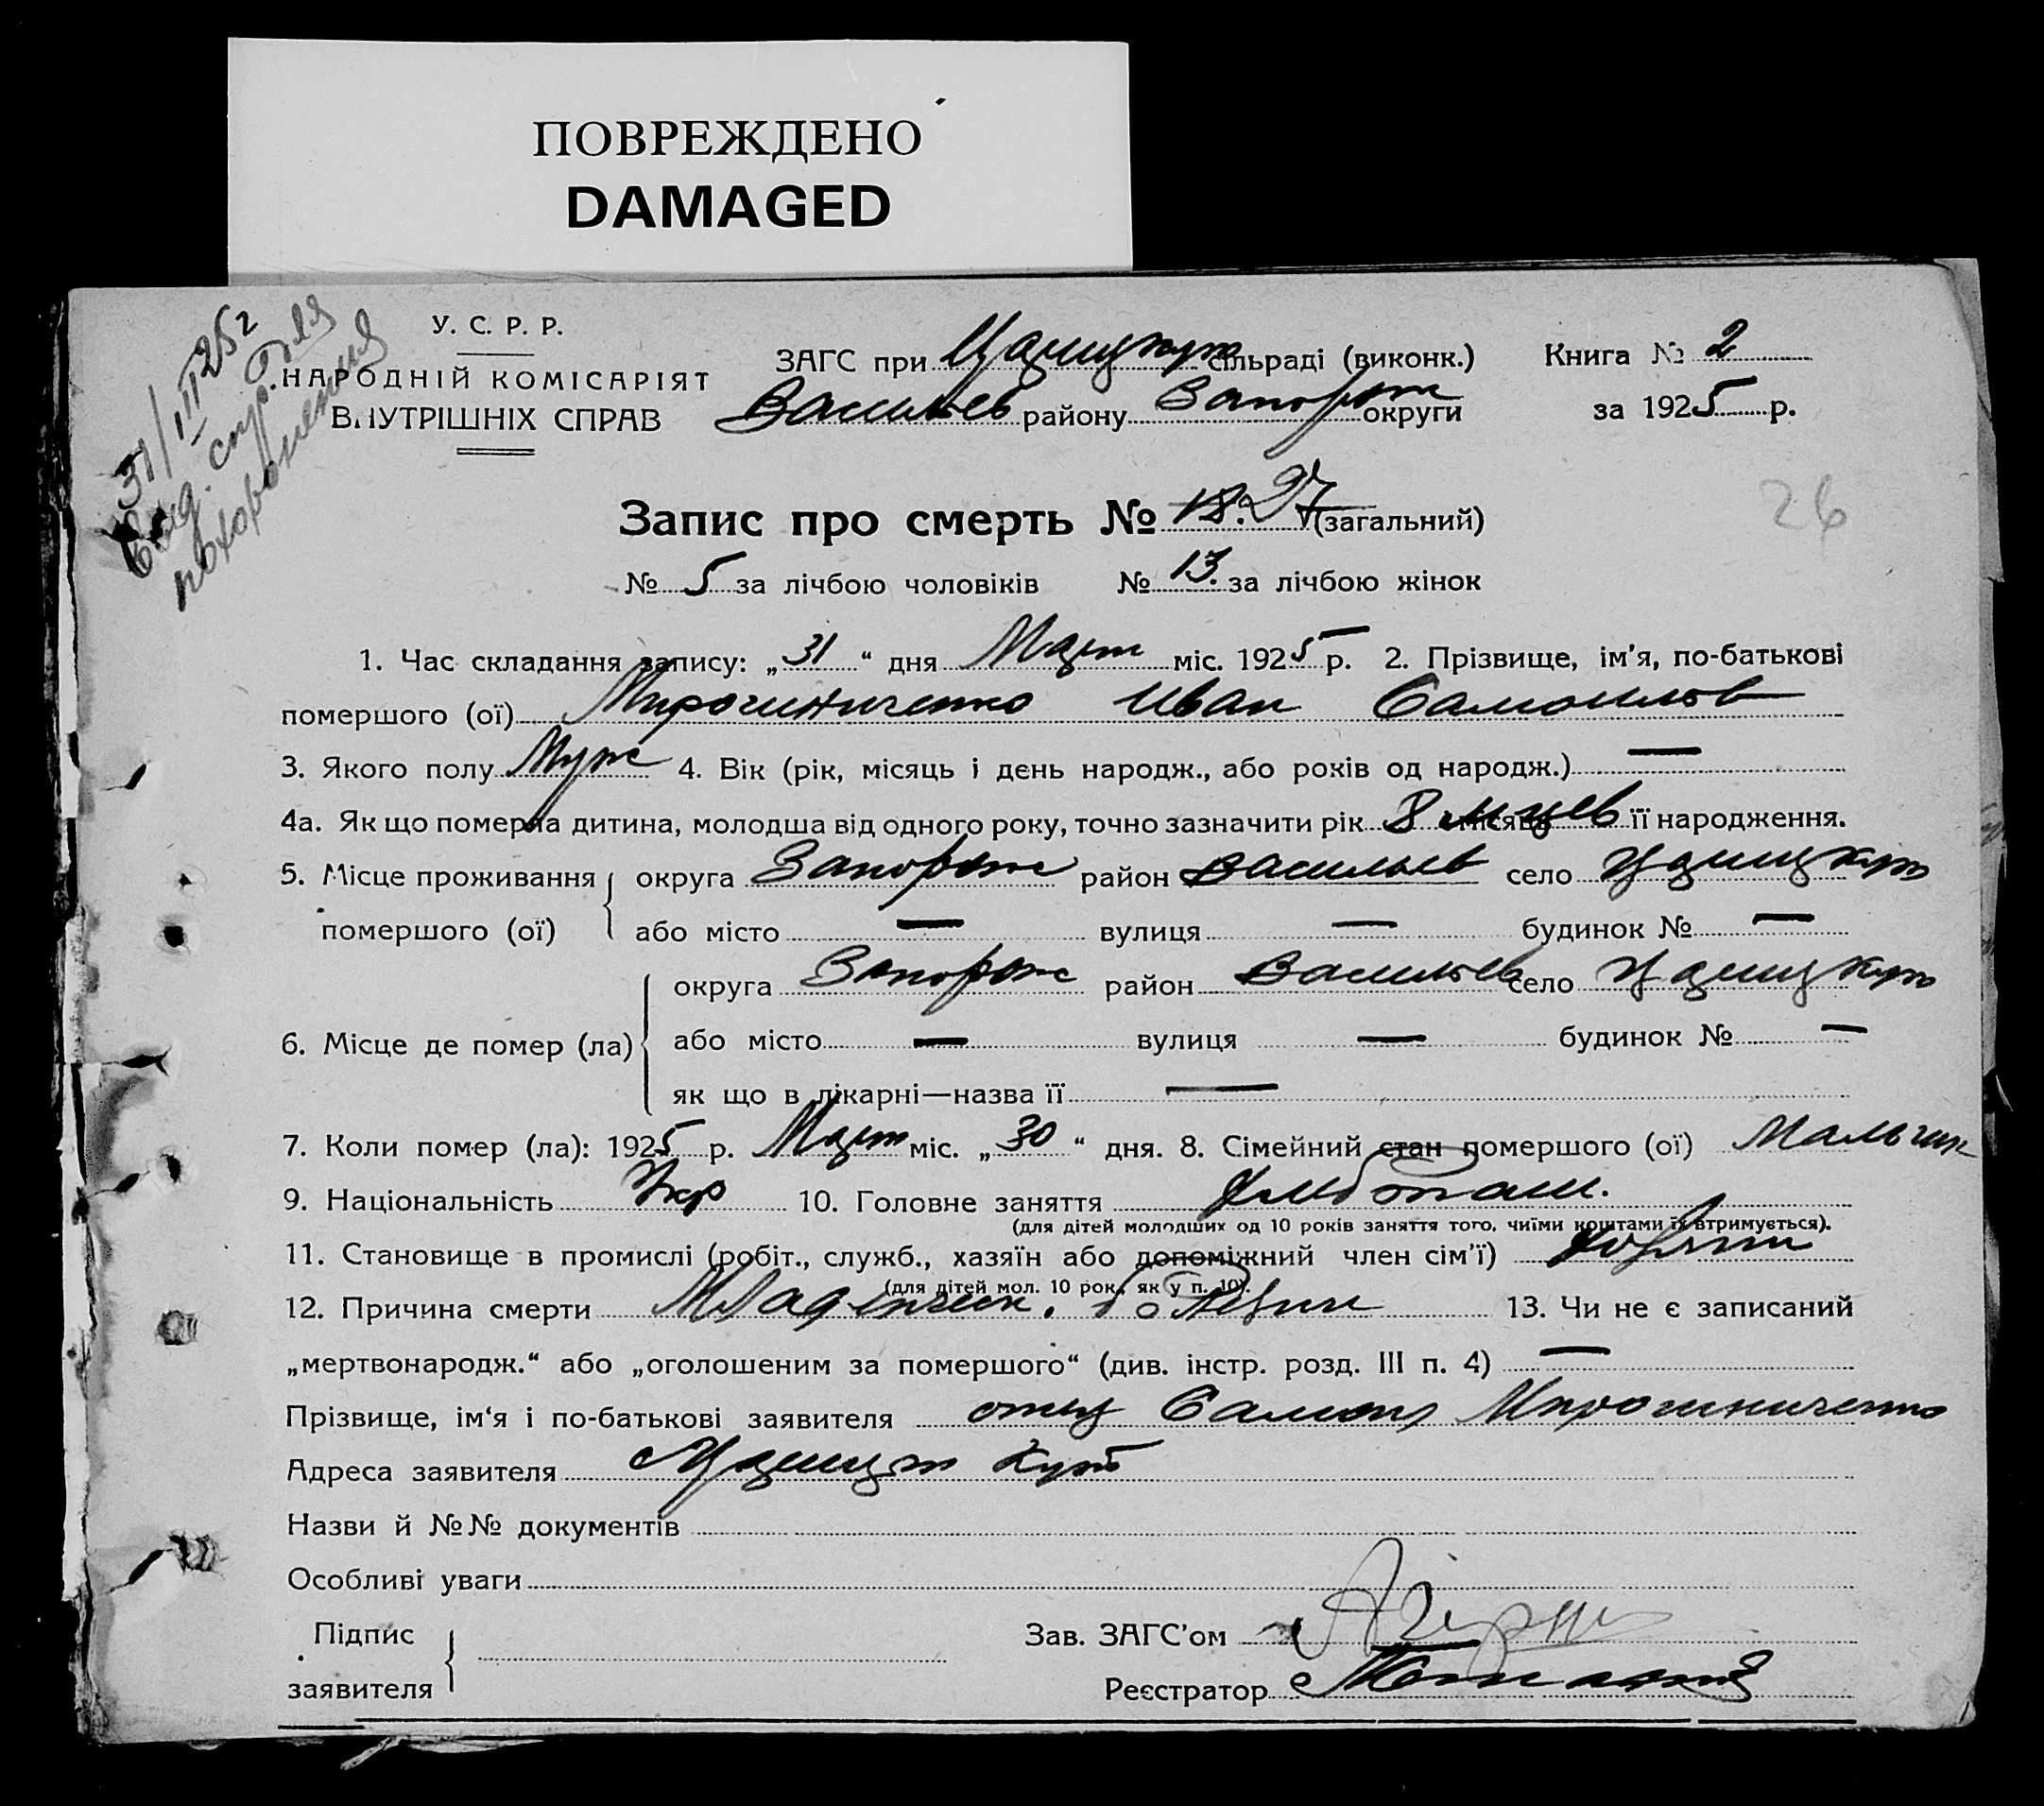 ПОВРЕЖДЕНО
DAMAGED
31/III 25 г
Выд. спр. для
похоронения
У. С. Р. Р.
НАРОДНІЙ КОМІСАРІЯТ
ВНУТРІШНІХ СПРАВ
ЗАГС при Царицкут сільраді (виконк.)
Васильев району Запорож округи
Книга № 2
за 1925 р.
Запис про смерть № 18. 27 (загальний)
26
№ 5 за лічбою чоловіків № 13. за лічбою жінок
1. Час складання запису: „31“ дня Март міс. 1925 р. 2. Прізвище, ім'я, по-батькові
помершого (ої) Мирошниченко Иван Самоилов
3. Якого полу Муж 4. Вік (рік, місяць і день народж., або років од народж.) —
4а. Як що померла дитина, молодша від одного року, точно зазначити рік 8 м-цев місяць її народження.
5. Місце проживання помершого (ої) округа Запорож район Васильев село Царицкут
або місто — вулиця — будинок № —
6. Місце де помер (ла) округа Запорож район Васильев село Царицкут
або місто — вулиця — будинок № —
як що в лікарні—назва її —
7. Коли помер (ла): 1925 р. Март міс. „30“ дня. 8. Сімейний стан помершого (ої) Мальчик
9. Національність Укр 10. Головне заняття Хлебопаш.
(для дітей молодших од 10 років заняття того, чиїми коштами їх втримується).
11. Становище в промислі (робіт., служб., хазяїн або допоміжний член сім'ї) Хозяин
(для дітей мол. 10 рок. як у п. 10).
12. Причина смерти Младенчик. болезни 13. Чи не є записаний
„мертвонародж.“ або „оголошеним за помершого“ (див. інстр. розд. III п. 4) —
Прізвище, ім'я і по-батькові заявителя отец Самоил Мирошниченко
Адреса заявителя с Царицын Кут
Назви й №№ документів
Особливі уваги
Підпис заявителя
Зав. ЗАГС'ом
Реєстратор